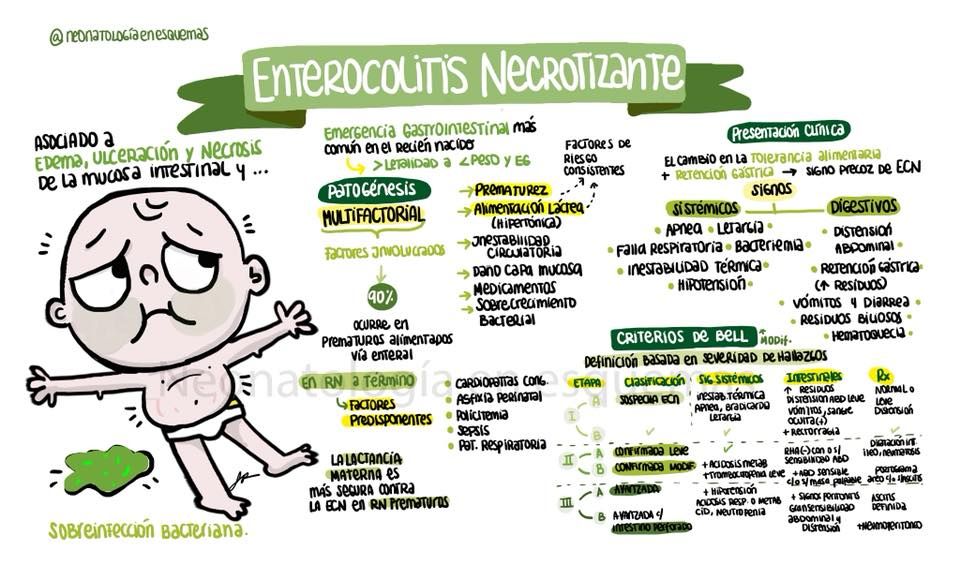 @neonatologíaenesquemas
Enterocolitis Necrotizante
Asociado a
Edema, ulceración y necrosis
de la mucosa intestinal y ...
Sobreinfección bacteriana.
Emergencia gastrointestinal más
común en el recién nacido
>Letalidad a <Peso y EG
Patogénesis
Multifactorial
Factores involucrados
90%
ocurre en
prematuros alimentados
vía enteral
Factores de
riesgo
consistentes
→ Prematurez
→ Alimentación láctea
(Hipertónica)
→ Inestabilidad
circulatoria
→ Daño capa mucosa
→ Medicamentos
→ Sobrecrecimiento
bacterial
En RN a término
↳ Factores
predisponentes
• Cardiopatías cong.
• Asfixia perinatal
• Policitemia
• Sepsis
• Pat. respiratoria
La lactancia
materna es
más segura contra
la ECN en RN prematuros
Neonatología en esquemas
Presentación clínica
El cambio en la tolerancia alimentaria
+ retención gástrica → signo precoz de ECN
Signos
Sistémicos
• Apnea • Letargia •
Falla respiratoria • Bacteriemia •
• Inestabilidad térmica •
• Hipotensión •
Digestivos
• Distensión
abdominal •
• Retención gástrica
(↑ Residuos) •
• Vómitos y diarrea •
Residuos biliosos •
• Hematoquecia •
Criterios de Bell
Modif.
Definición basada en severidad de hallazgos
Etapa Clasificación Sig. Sistémicos Intestinales Rx
I A Sospecha ECN
Inestab. térmica
Apnea, bradicardia
Letargia
↑ Residuos
Distensión abd leve
Vómitos, sangre
oculta (+)
Normal o
leve
distorsión
B ✓ ✓ + Rectorragia ✓
II A Confirmada leve ✓
RHA(-) con o s/
sensibilidad abd
Dilatación int
íleo, neumatosis
B Confirmada modif
+ Acidosis metab
+ Trombocitopenia leve
+ Abd sensible
c/o s/ masa palpable
Portograma
aéreo c/o s/ascitis
III A Avanzada
+ Hipotensión
Acidosis resp. o metab
CID, neutropenia
+ Signos peritonitis
Gran sensibilidad
abdominal y
distensión
Ascitis
definida
B Avanzada c/
intestino perforado
+Neumoperitoneo